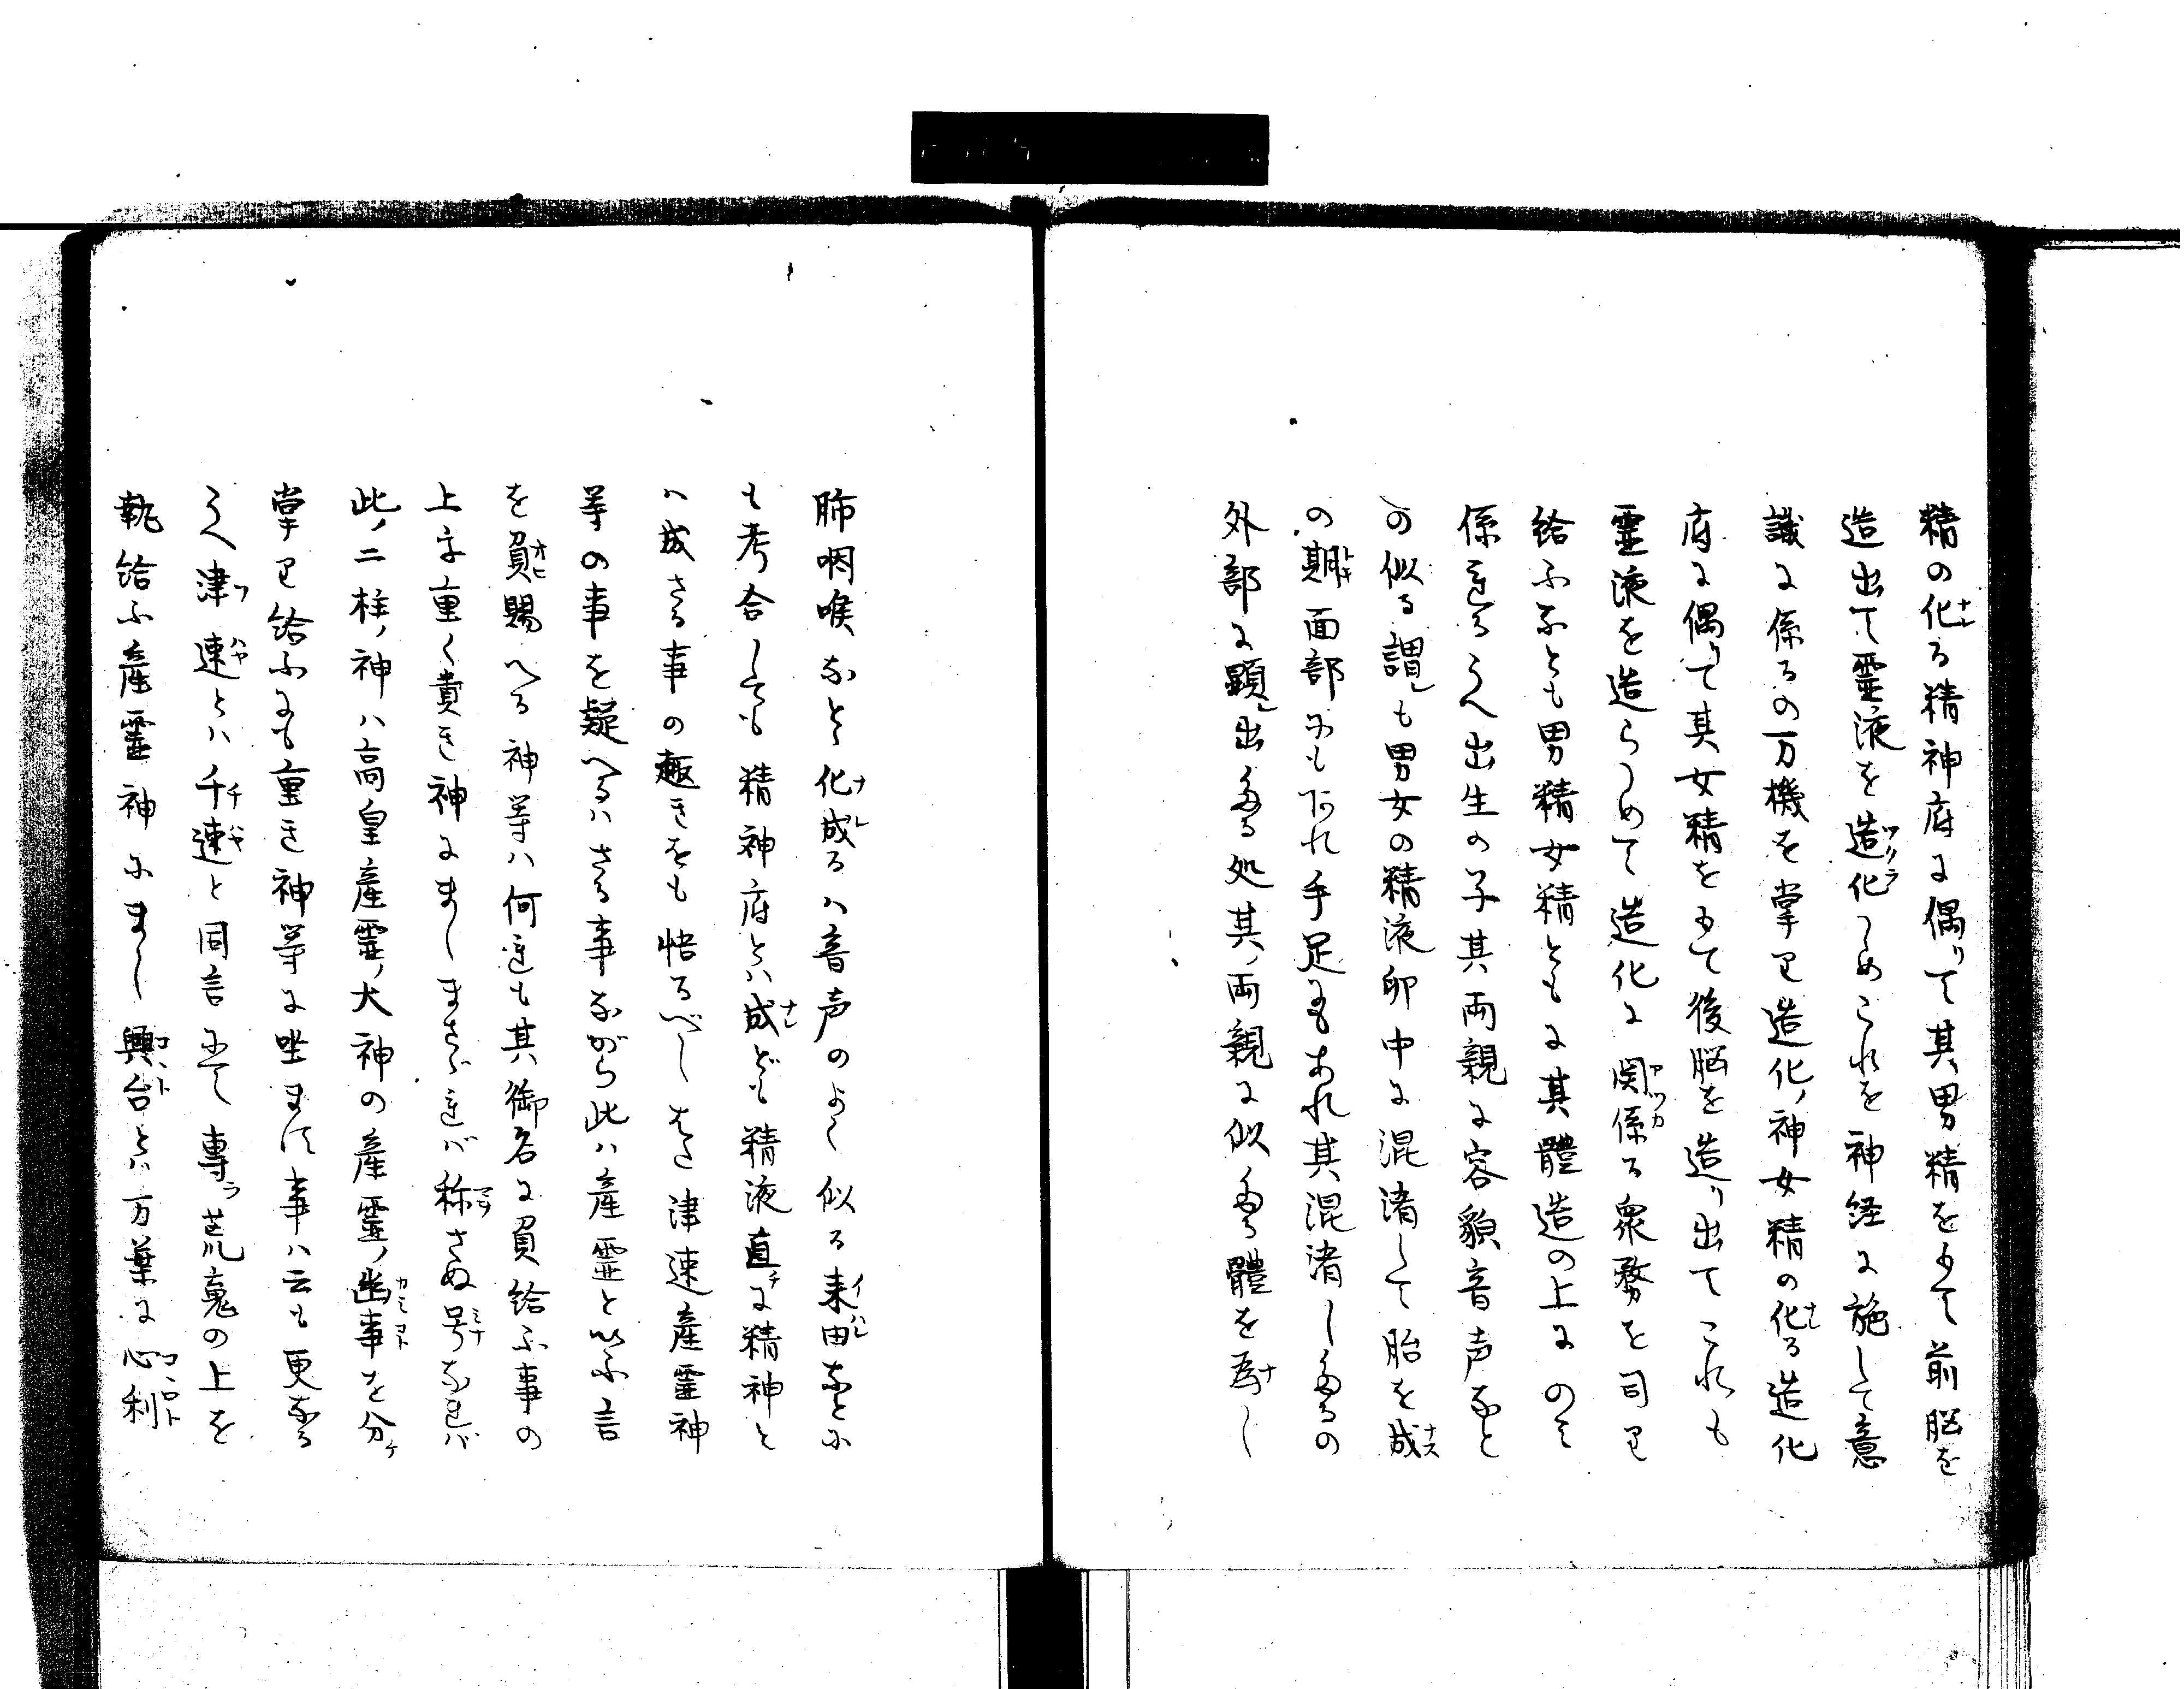 精の化る精神府に偶りて其男精をもて前脳を
造出て霊液を造化しめこれを神経に施して意
識に係るの万機を掌り造化ノ神女精の化る造化
府に偶りて其女精をもて後脳を造り出てこれも
霊液を造らしめて造化に関係る衆務を司り
給ふなとも男精女精ともに其體造の上にのミ
係れるうへ出生の子其両親に容貌音声なと
の似る謂しも男女の精液卵中に混淆して胎を成
の期面部にもあれ手足にもあれ其混淆したるの
外部に顕し出たる処其ノ両親に似たる體を為し
肺咽喉なと化成るハ音声のよく似る来由なとに
も考合しても精神府とハ成ども精液直に精神と
ハ成さる事の趣きをも悟るべしまた津速産霊神
等の事を疑へるハさる事ながら此ハ産霊と以ふ言
を負賜へる神等ハ何れも其御名に負給ふ事の
上に重く貴き神にましまさゞれバ称さぬ号なれバ
此ノ二柱ノ神ハ高皇産霊ノ大神の産霊ノ幽事を分ケ
掌り給ふにも重き神等に坐ます事ハ云も更なる
うへ津速とハ千速と同言にて専ラ荒魂の上を
執給ふ産霊神にまし興台とハ万葉に心利